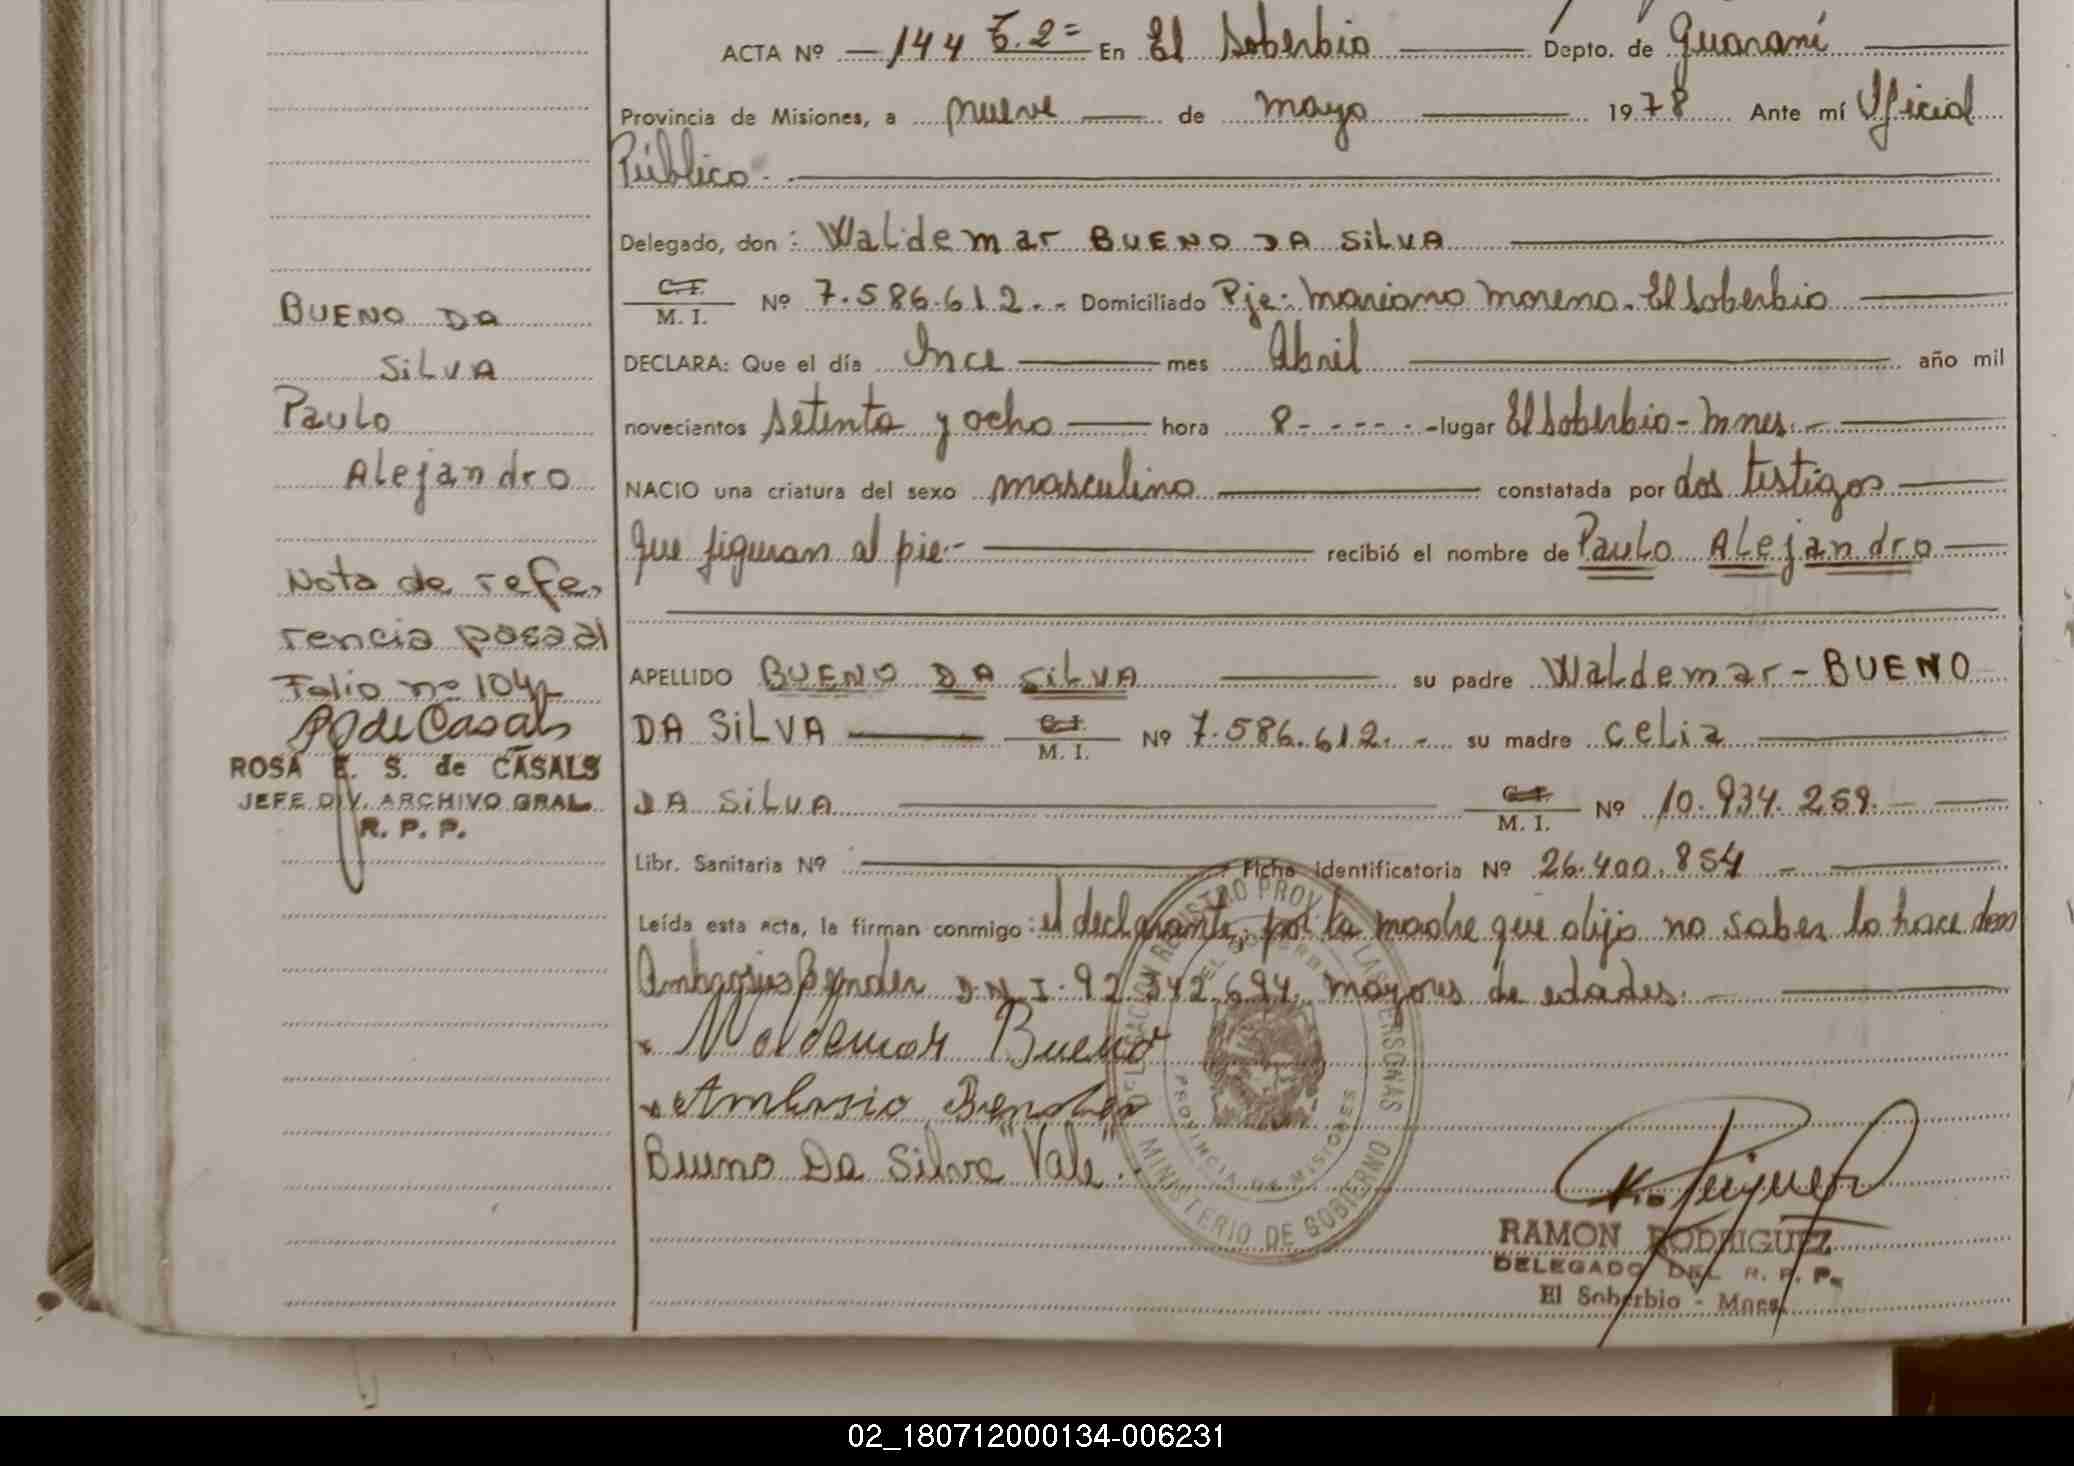 ACTA Nº 144 T. 2= En El Soberbio Depto. de Guaraní
Provincia de Misiones, a nueve de mayo 1978 Ante mí Oficial
Público.
Delegado, don: Waldemar BUENO DA SILVA
C.I. M. I. Nº 7.586.612.- Domiciliado Pje: Mariano Moreno. El Soberbio
DECLARA: Que el día Once mes Abril año mil
novecientos setenta y ocho hora 8----- lugar El Soberbio - Mnes.-
NACIO una criatura del sexo masculino constatada por dos testigos
que figuran al pie.- recibió el nombre de Paulo Alejandro
APELLIDO BUENO DA SILVA su padre Waldemar - BUENO
DA SILVA C.I. M. I. Nº 7.586.612.- su madre Celia
DA SILVA C.I. M. I. Nº 10.934.259.
Libr. Sanitaria Nº Ficha identificatoria Nº 26.400.854
Leída esta acta, la firman conmigo: el declarante, por la madre que dijo no saber lo hace don
Ambrosio Bender D.N.I. 92.342.694, mayores de edades.
Waldemar Bueno
Ambrosio Bender
Bueno Da Silva "Vale".
BUENO DA
SILVA
Paulo
Alejandro
Nota de refe,
rencia pasa al
Folio nº 104
R de Casals
ROSA E. S. de CASALS
JEFE DIV. ARCHIVO GRAL.
R. P. P.
DELEGACION REGISTRO PROV. LAS PERSONAS
EL SOBERBIO
PROVINCIA DE MISIONES
MINISTERIO DE GOBIERNO
RAMON RODRIGUEZ
DELEGADO DEL R. P. P.
El Soberbio - Mnes.
02_180712000134-006231